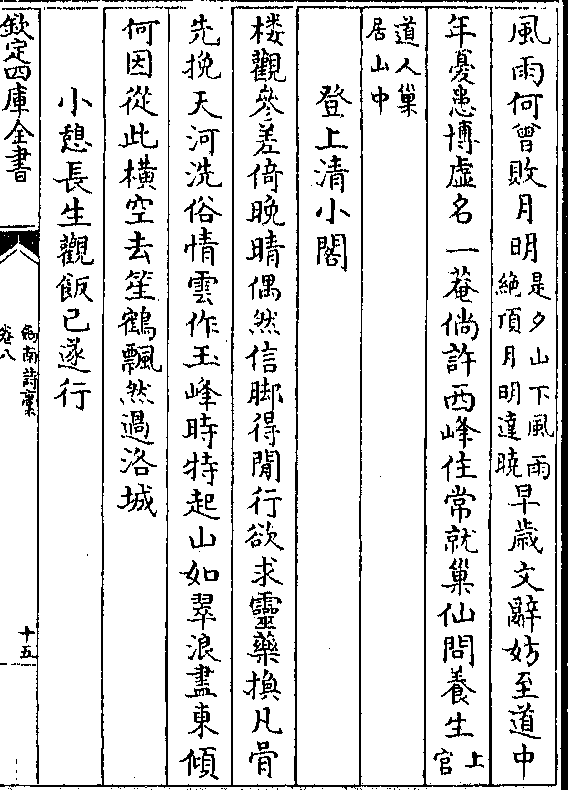 風雨何曾敗月明是夕山下風雨絶頂月明達曉早歲文辭妨至道中
年憂患博虛名一菴倘許西峰住常就巢仙問養生上官
道人巢居山中
登上清小閣
樓觀參差倚晚晴偶然信脚得閒行欲求靈藥換凡骨
先挽天河洗俗情雲作玉峰時特起山如翠浪盡東傾
何因從此橫空去笙鶴飄然過洛城
小憩長生觀飯已遂行
欽定四庫全書
劍南詩稾
卷八
十五